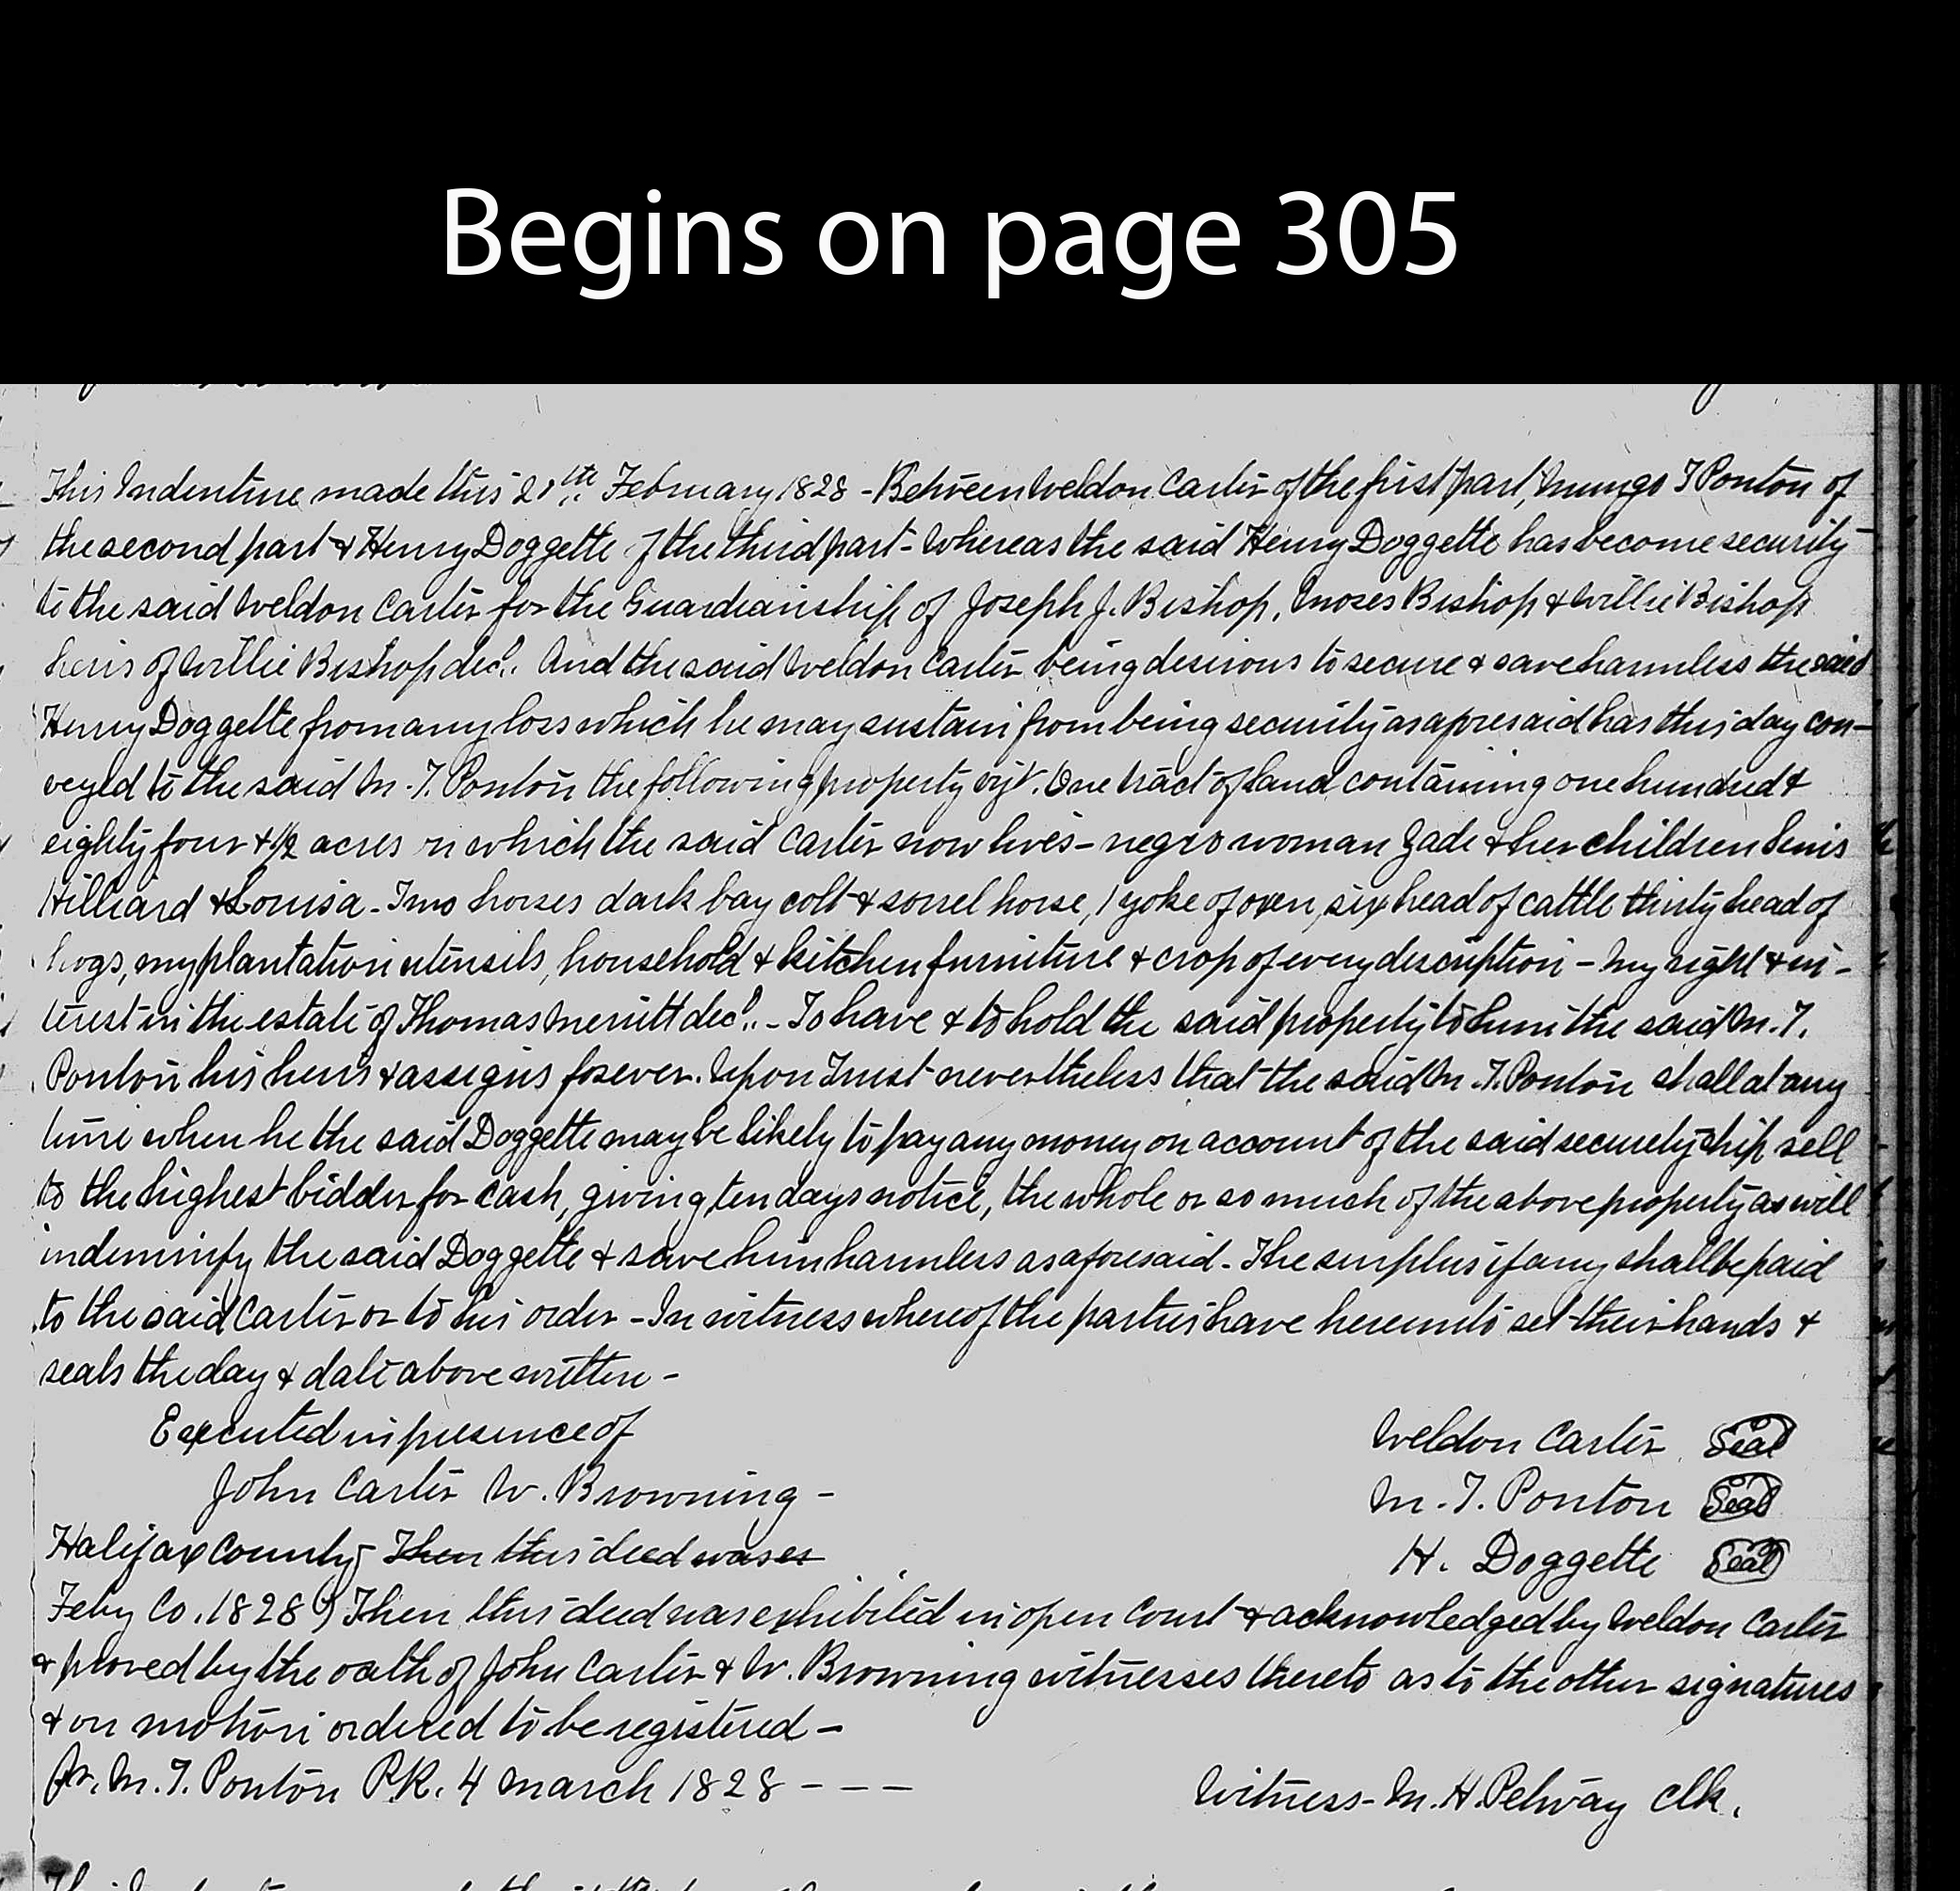 Begins on page 305
This Indenture made this 20th February 1828 - Between Weldon Carter of the first part, Mungo T Ponton of
the second part & Henry Doggette of the third part - Whereas the said Henry Doggette has become security
to the said Weldon Carter for the Guardianship of Joseph J. Bishop, Moses Bishop & Willie Bishop
heirs of Willie Bishop decd. And the said Weldon Carter being desirous to secure & save harmless the said
Henry Doggette from any loss which he may sustain from being security as aforesaid has this day con-
veyed to the said M. T. Ponton the following property vizt. One tract of land containing one hundred &
eighty four & 1/2 acres on which the said Carter now lives - negro woman Jade & her children
Hilliard & Louisa - Two horses dark bay colt & sorrel horse, 1 yoke of oxen, six head of cattle thirty head of
hogs, my plantation utensils, household & kitchen furniture & crop of every description - My right & in-
terest in the estate of Thomas Merritt decd. - To have & to hold the said property to him the said M. T.
Ponton his heirs & assigns forever. Upon Trust nevertheless that the said M. T. Ponton shall at any
time when he the said Doggette may be likely to pay any money on account of the said securityship sell
to the highest bidder for cash, giving ten days notice, the whole or so much of the above property as will
indemnify the said Doggette & save him harmless as aforesaid - The surplus if any shall be paid
to the said Carter or to his order - In witness whereof the parties have hereunto set their hands &
seals the day & date above written -
Executed in presence of
Weldon Carter Seal
John Carter W. Browning -
M. T. Ponton Seal
Halifax County Then this deed was ex
H. Doggette Seal
Feby Co. 1828 } Then this deed was exhibited in open Court & acknowledged by Weldon Carter
& proved by the oath of John Carter & W. Browning witnesses thereto as to the other signatures
& on motion ordered to be registered -
Pr. M. T. Ponton P.R. 4 March 1828 - - -
Witness - M. H. Petway Clk.